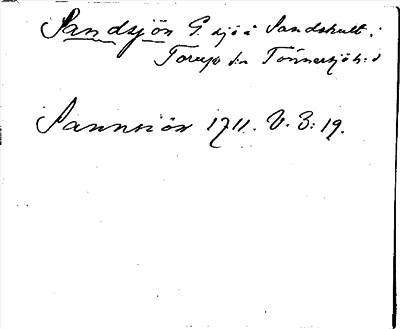 Sandsjön G. sjö i Sandshult i
Torup sn Tönnersjö h:d
Sannsiön 1711. V. 3: 19.